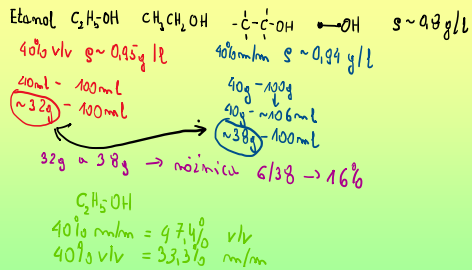 Etanol C₂H₅-OH CH₃CH₂OH -C-C-OH -OH ρ~0,8 g/l
40% v/v ρ~0,95g/l
40% m/m ρ~0,94 g/l
40ml - 100ml
~32g - 100ml
40g - 100g
40g - ~106ml
~38g - 100ml
32g a 38g → różnica 6/38 → 16%
C₂H₅-OH
40% m/m = 47,4% v/v
40% v/v = 33,3% m/m